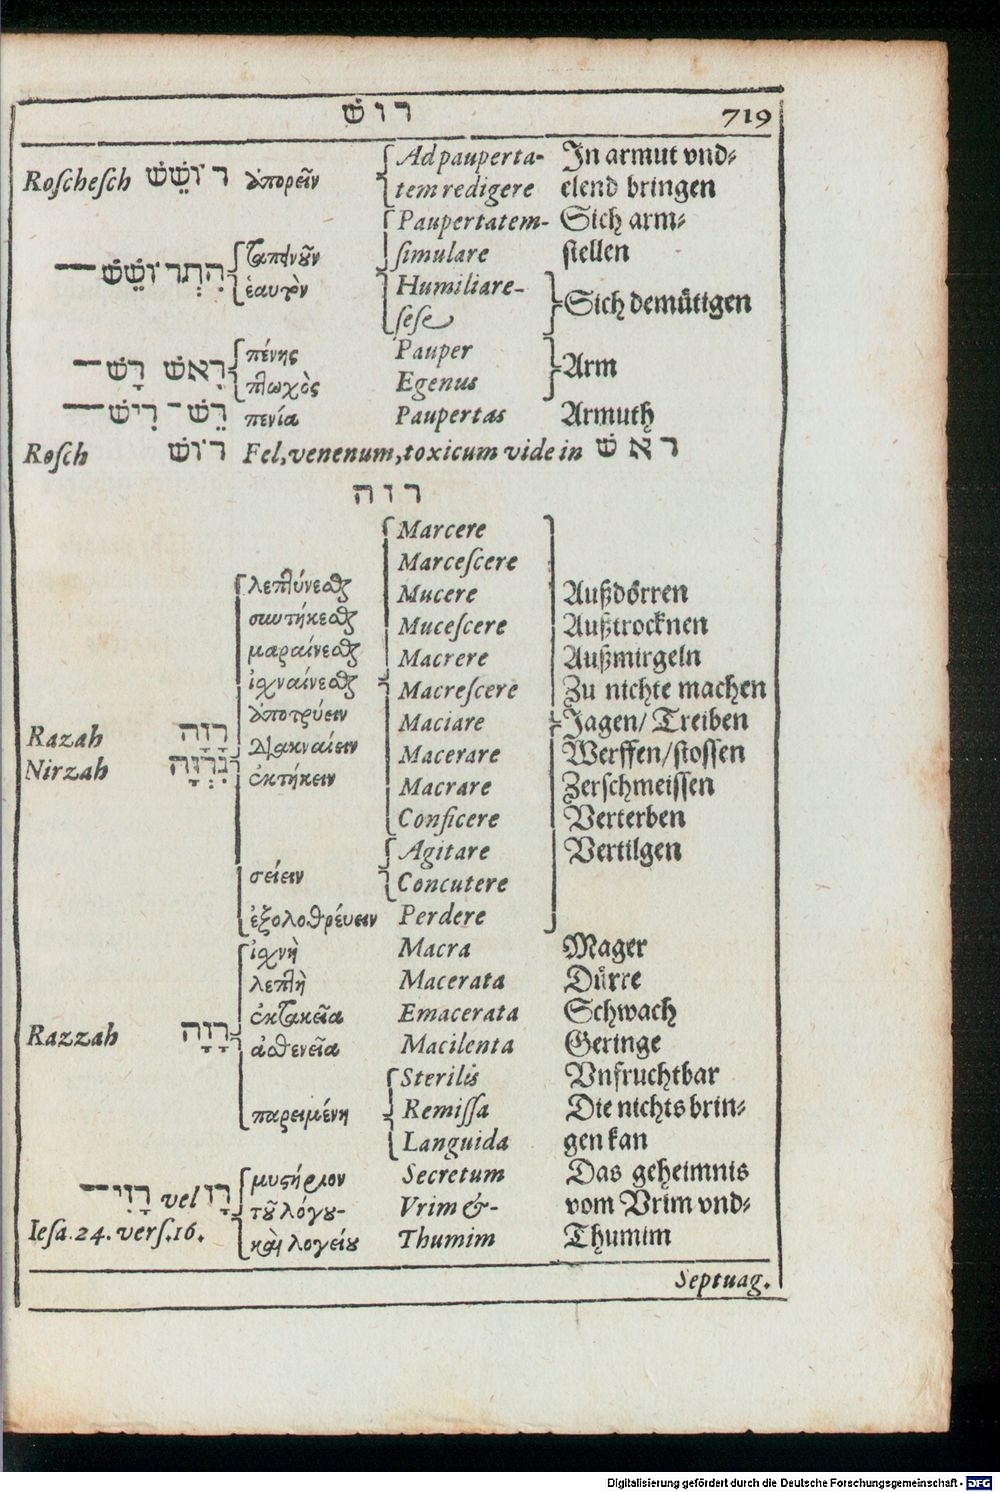 רוש 719
Roſcheſch רוֹשֵׁשׁ ἀπορεῖν Ad pauperta- In armut vnd⸗
tem redigere elend bringen
Paupertatem- Sich arm⸗
הִתְרוֹשֵׁשׁ— ταπεινοῦν ſimulare ſtellen
ἑαυτὸν Humiliare- Sich demütigen
ſeſe
רָשׁ רִאשׁ— πένης Pauper Arm
πτωχὸς Egenus
רֵשׁ־ רִישׁ— πενία Paupertas Armuth
Roſch רוֹשׁ Fel, venenum, toxicum vide in ראשׁ
רזה
Marcere
Marceſcere
λεπτύνεσθαι Mucere Außdörren
συντήκεσθαι Muceſcere Außtrocknen
μαραίνεσθαι Macrere Außmirgeln
ἰσχναίνεσθαι Macreſcere Zu nichte machen
ἀποτρύειν Maciare Jagen/ Treiben
Razah רָזָה διακναίειν Macerare Werffen/ſtoſſen
Nirzah נִרְזָה ἐκτήκειν Macrare Zerſchmeiſſen
Conficere Verterben
Agitare Vertilgen
σείειν Concutere
ἐξολοθρεύειν Perdere
ἰσχνὴ Macra Mager
λεπτὴ Macerata Dürre
ἐκτακεῖσα Emacerata Schwach
Razzah רָזָה ἀσθενεῖσα Macilenta Geringe
Sterilis Vnfruchtbar
παρειμένη Remiſſa Die nichts brin⸗
Languida gen kan
רָז vel רָזִי— μυστήριον Secretum Das geheimnis
τοῦ λόγου- Vrim &- vom Vrim vnd⸗
Ieſa. 24. verſ. 16. καὶ λογείου Thumim Thumim
Septuag.
Digitalisierung gefördert durch die Deutsche Forschungsgemeinschaft - DFG